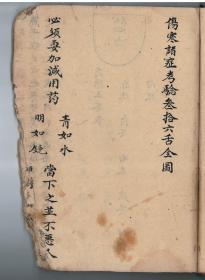 傷寒諸症考驗叁拾六舌全圖
必須要加減用药
青如水
明如鏡
當下之並不悪人